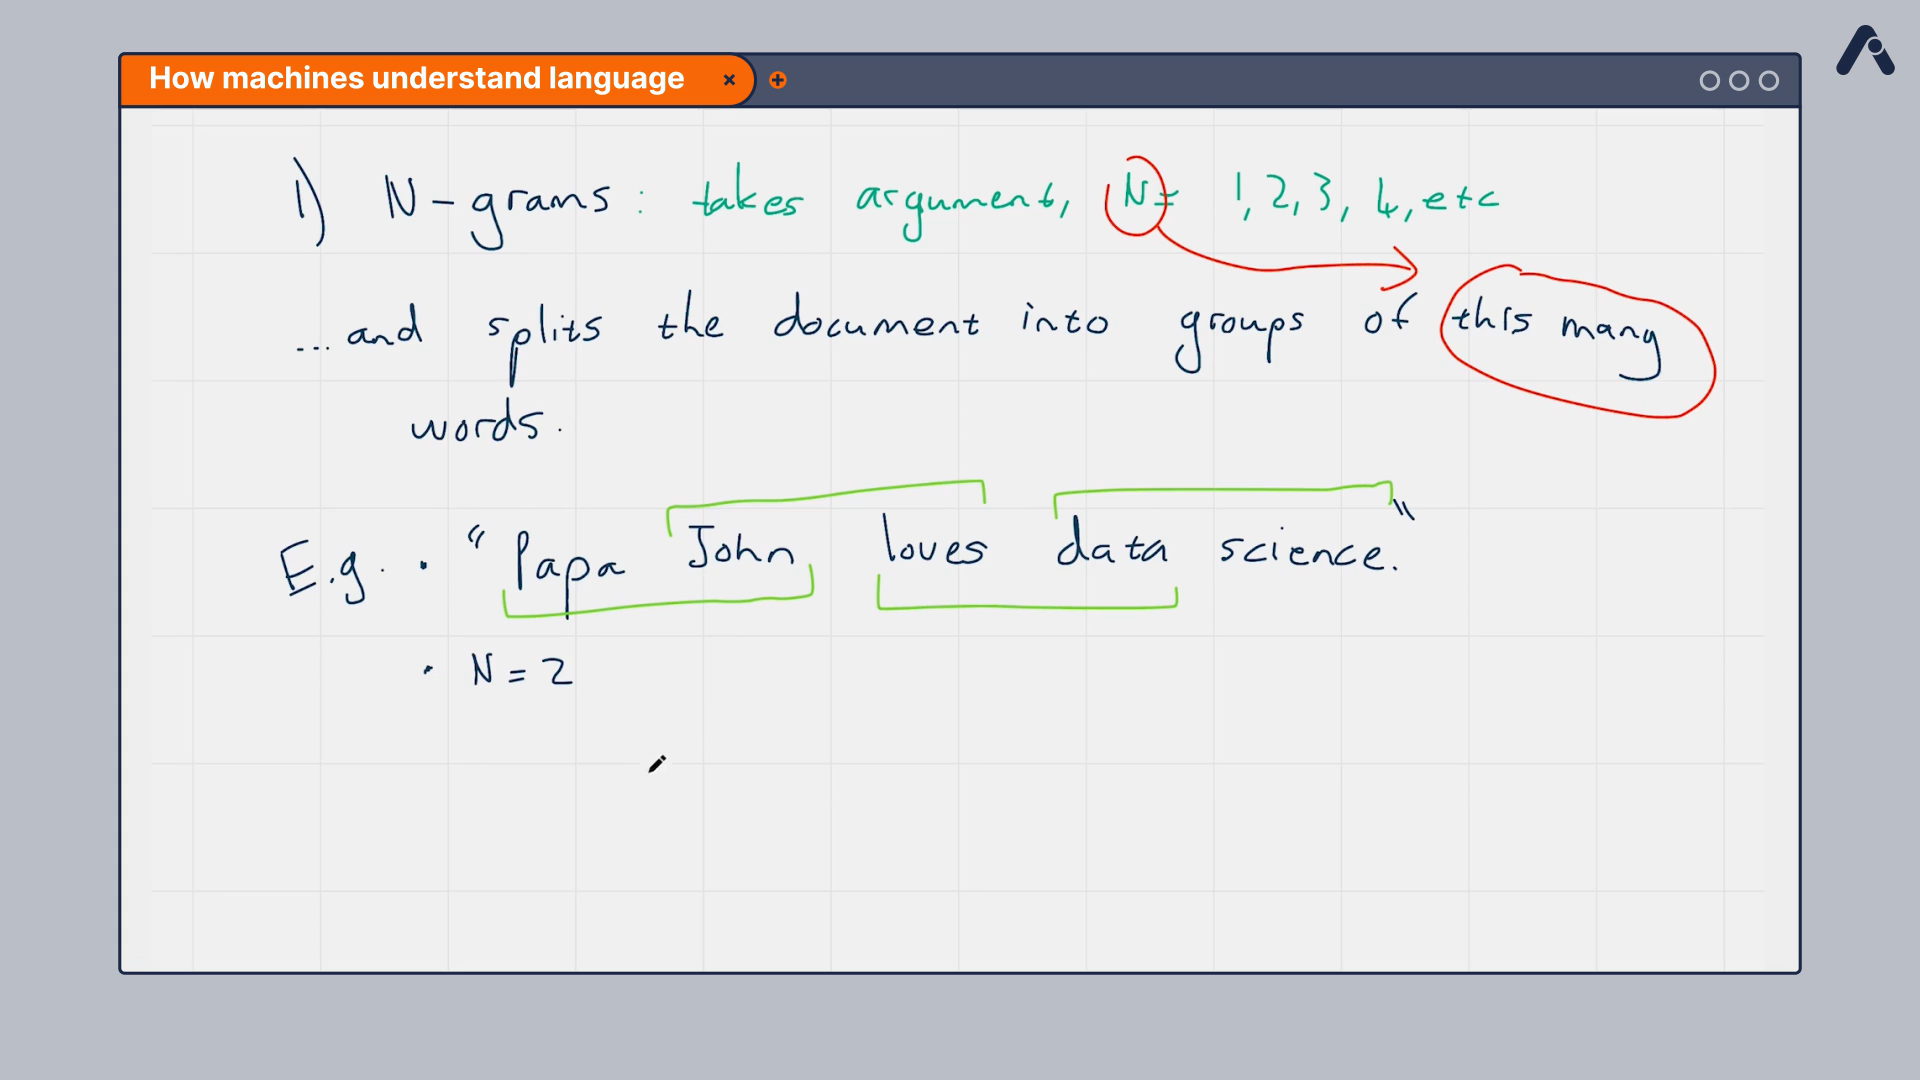 How machines understand language
1) N-grams: takes argument, N= 1, 2, 3, 4, etc
...and splits the document into groups of this many
words.
E.g. · "Papa John loves data science."
· N = 2